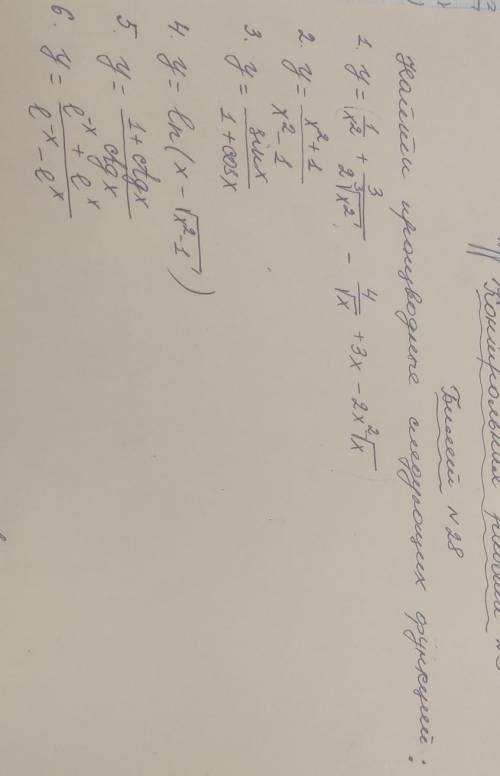 Контрольная работа
Билет №28
Найти производные следующих функций:
1. y = 1/x² + 3/(2∛x²) - 4/√x + 3x - 2x²√x
2. y = (x²+1)/(x²-1)
3. y = sinx/(1+cosx)
4. y = ln(x - √(x²-1))
5. y = (1+ctgx)/ctgx
6. y = (e⁻ˣ + eˣ)/(e⁻ˣ - eˣ)